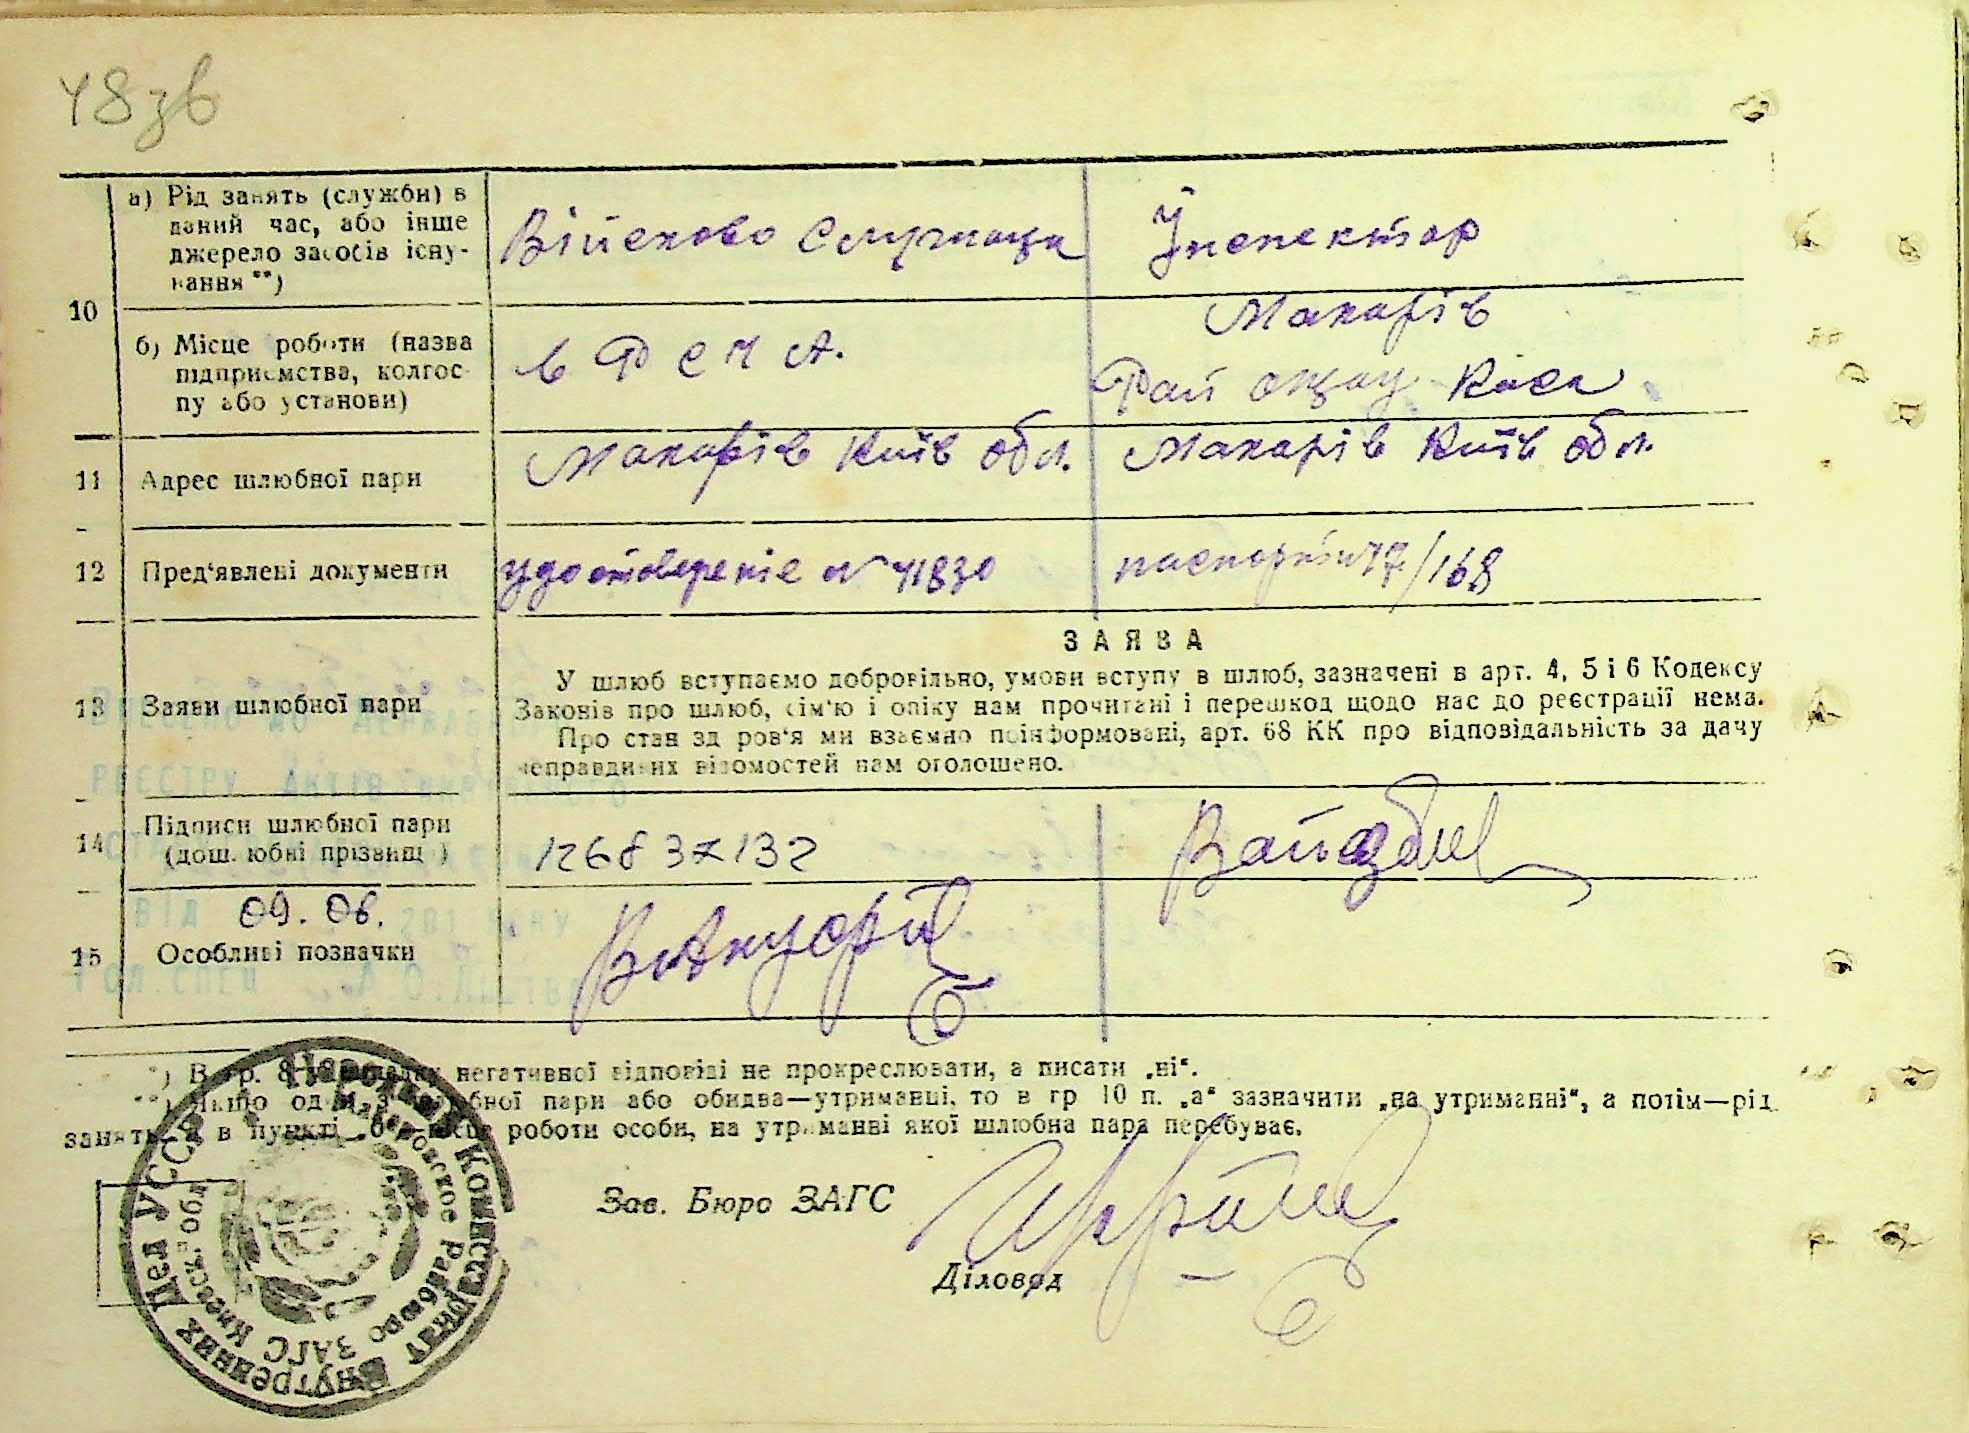 48зв
а) Рід занять (служби) в
даний час, або інше
джерело засобів існу-
вання **)
Військово служащи
Інспектор
10
б) Місце роботи (назва
підприємства, колгос-
пу або установи)
в Р С Ч А.
Макарів
Рай ощад каса
11
Адрес шлюбної пари
Макарів Київ обл.
Макарів Київ обл.
12
Пред'явлені документи
удостовереніе N 41830
паспорт
/168
13
Заяви шлюбної пари
ЗАЯВА
У шлюб вступаємо добровільно, умови вступу в шлюб, зазначені в арт. 4, 5 і 6 Кодексу
Законів про шлюб, сім'ю і опіку нам прочитані і перешкод щодо нас до реєстрації нема.
Про стан здоров'я ми взаємно поінформовані, арт. 68 КК про відповідальність за дачу
неправдивих відомостей нам оголошено.
14
Підписи шлюбної пари
(дошлюбні прізвища)
15
09. 06.
Особливі позначки
РЕЄСТРУ АКТІВ
ВІД
*) В гр. 8 негативної відповіді не прокреслювати, а писати „ні“.
**) Якщо один з шлюбної пари або обидва—утриманці, то в гр 10 п. „а“ зазначити „на утриманні“, а потім—рід
занять, а в пункті „б“ місце роботи особи, на утриманні якої шлюбна пара перебуває.
Зав. Бюро ЗАГС
Діловод
Народний Комиссариат Внутренних Дел УССР
Макаровское Райбюро ЗАГС Киевск. обл.